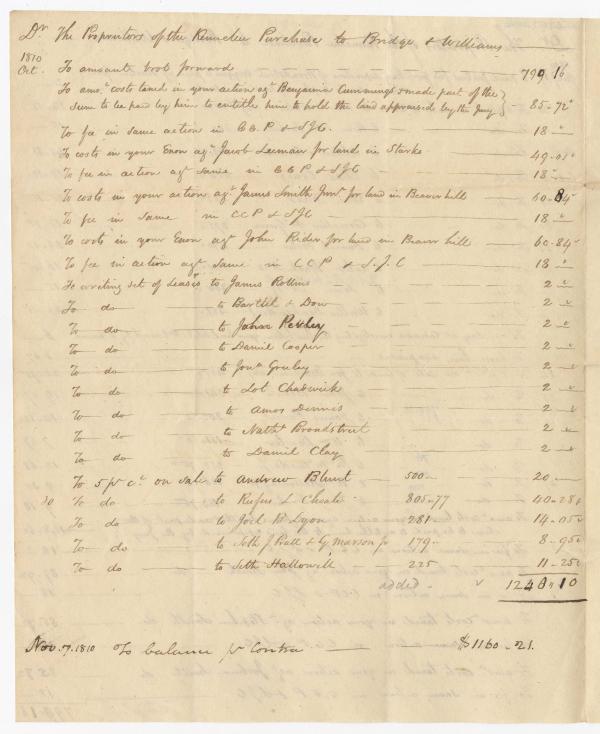 Dr. The Proprietors of the Kennebec Purchase to Bridge & Williams
1810
Oct. To amount brot forward 799.16
To amt. costs taxed in your action agt. Benjamin Cummings & made part of the
sum to be paid by him to entitle him to hold the land appraised by the Jury } 85.72
To fee in same action in C.C.P & SJC. 18 "
To costs in your Exon agt. Jacob Leeman for land in Starks 49.01
To fee in action agt same in CCP & SJC 18 "
To costs in your action agt. James Smith Junr. for land in Beaver hill 60.84
To fee in same in CCP & SJC 18 "
To costs in your Exon agt. John Rider for land in Beaver hill 60.84
To fee in action agt. same in CCP & S.J.C 18 "
To writing set of Leases to James Rollins 2 "
To do to Bartlet & Dow 2 "
To do to Pettey 2 "
To do to Daniel Cooper 2 "
To do to Jona Greeley 2 "
To do to Lot Chadwick 2 "
To do to Amos Dennis 2 "
To do to Nathl. Broadstreet 2 "
To do to Daniel Clay 2 "
To 5 pr ct. on sale to Andrew Blunt 500 20
To do to Rufus L Choate 805.77 40.28
To do to Joel B Lyon 281 14.05
To do to Seth J Pratt & G Marson jr 179 8.95
To do to Seth Hallowell 225 11.25
added 1248.10
Nov. 7. 1810 To balance pr Contra $1160.21.